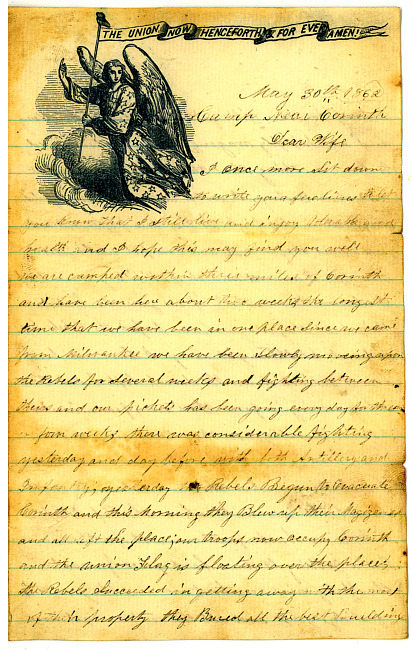 THE UNION NOW HENCEFORTH & FOR EVER AMEN!
May 30th 1862
Camp Near Corinth
Dear Wife
I once more sit down
to write you a few lines to let
you know that I still live and enjoy tolerable good
health and I hope this may find you well
we are camped within three miles of Corinth
and have been here about two weeks the longest
time that we have been in one place since we came
from Milwaukee we have been slowly moveing upon
the Rebels for several weeks and fighting between
theirs and our pickets has been going every day for three
or four weeks there was considerable fighting
yesterday and day before with both Artillery and
Infantry, yesterday the Rebels Begun to evacuate
Corinth and this morning they Blew up their Magazines
and all left the place, our troops now occupy Corinth
and the union Flag is floating over the place,
the Rebels Succeeded in getting away with the most
of their property they Burned all the best building